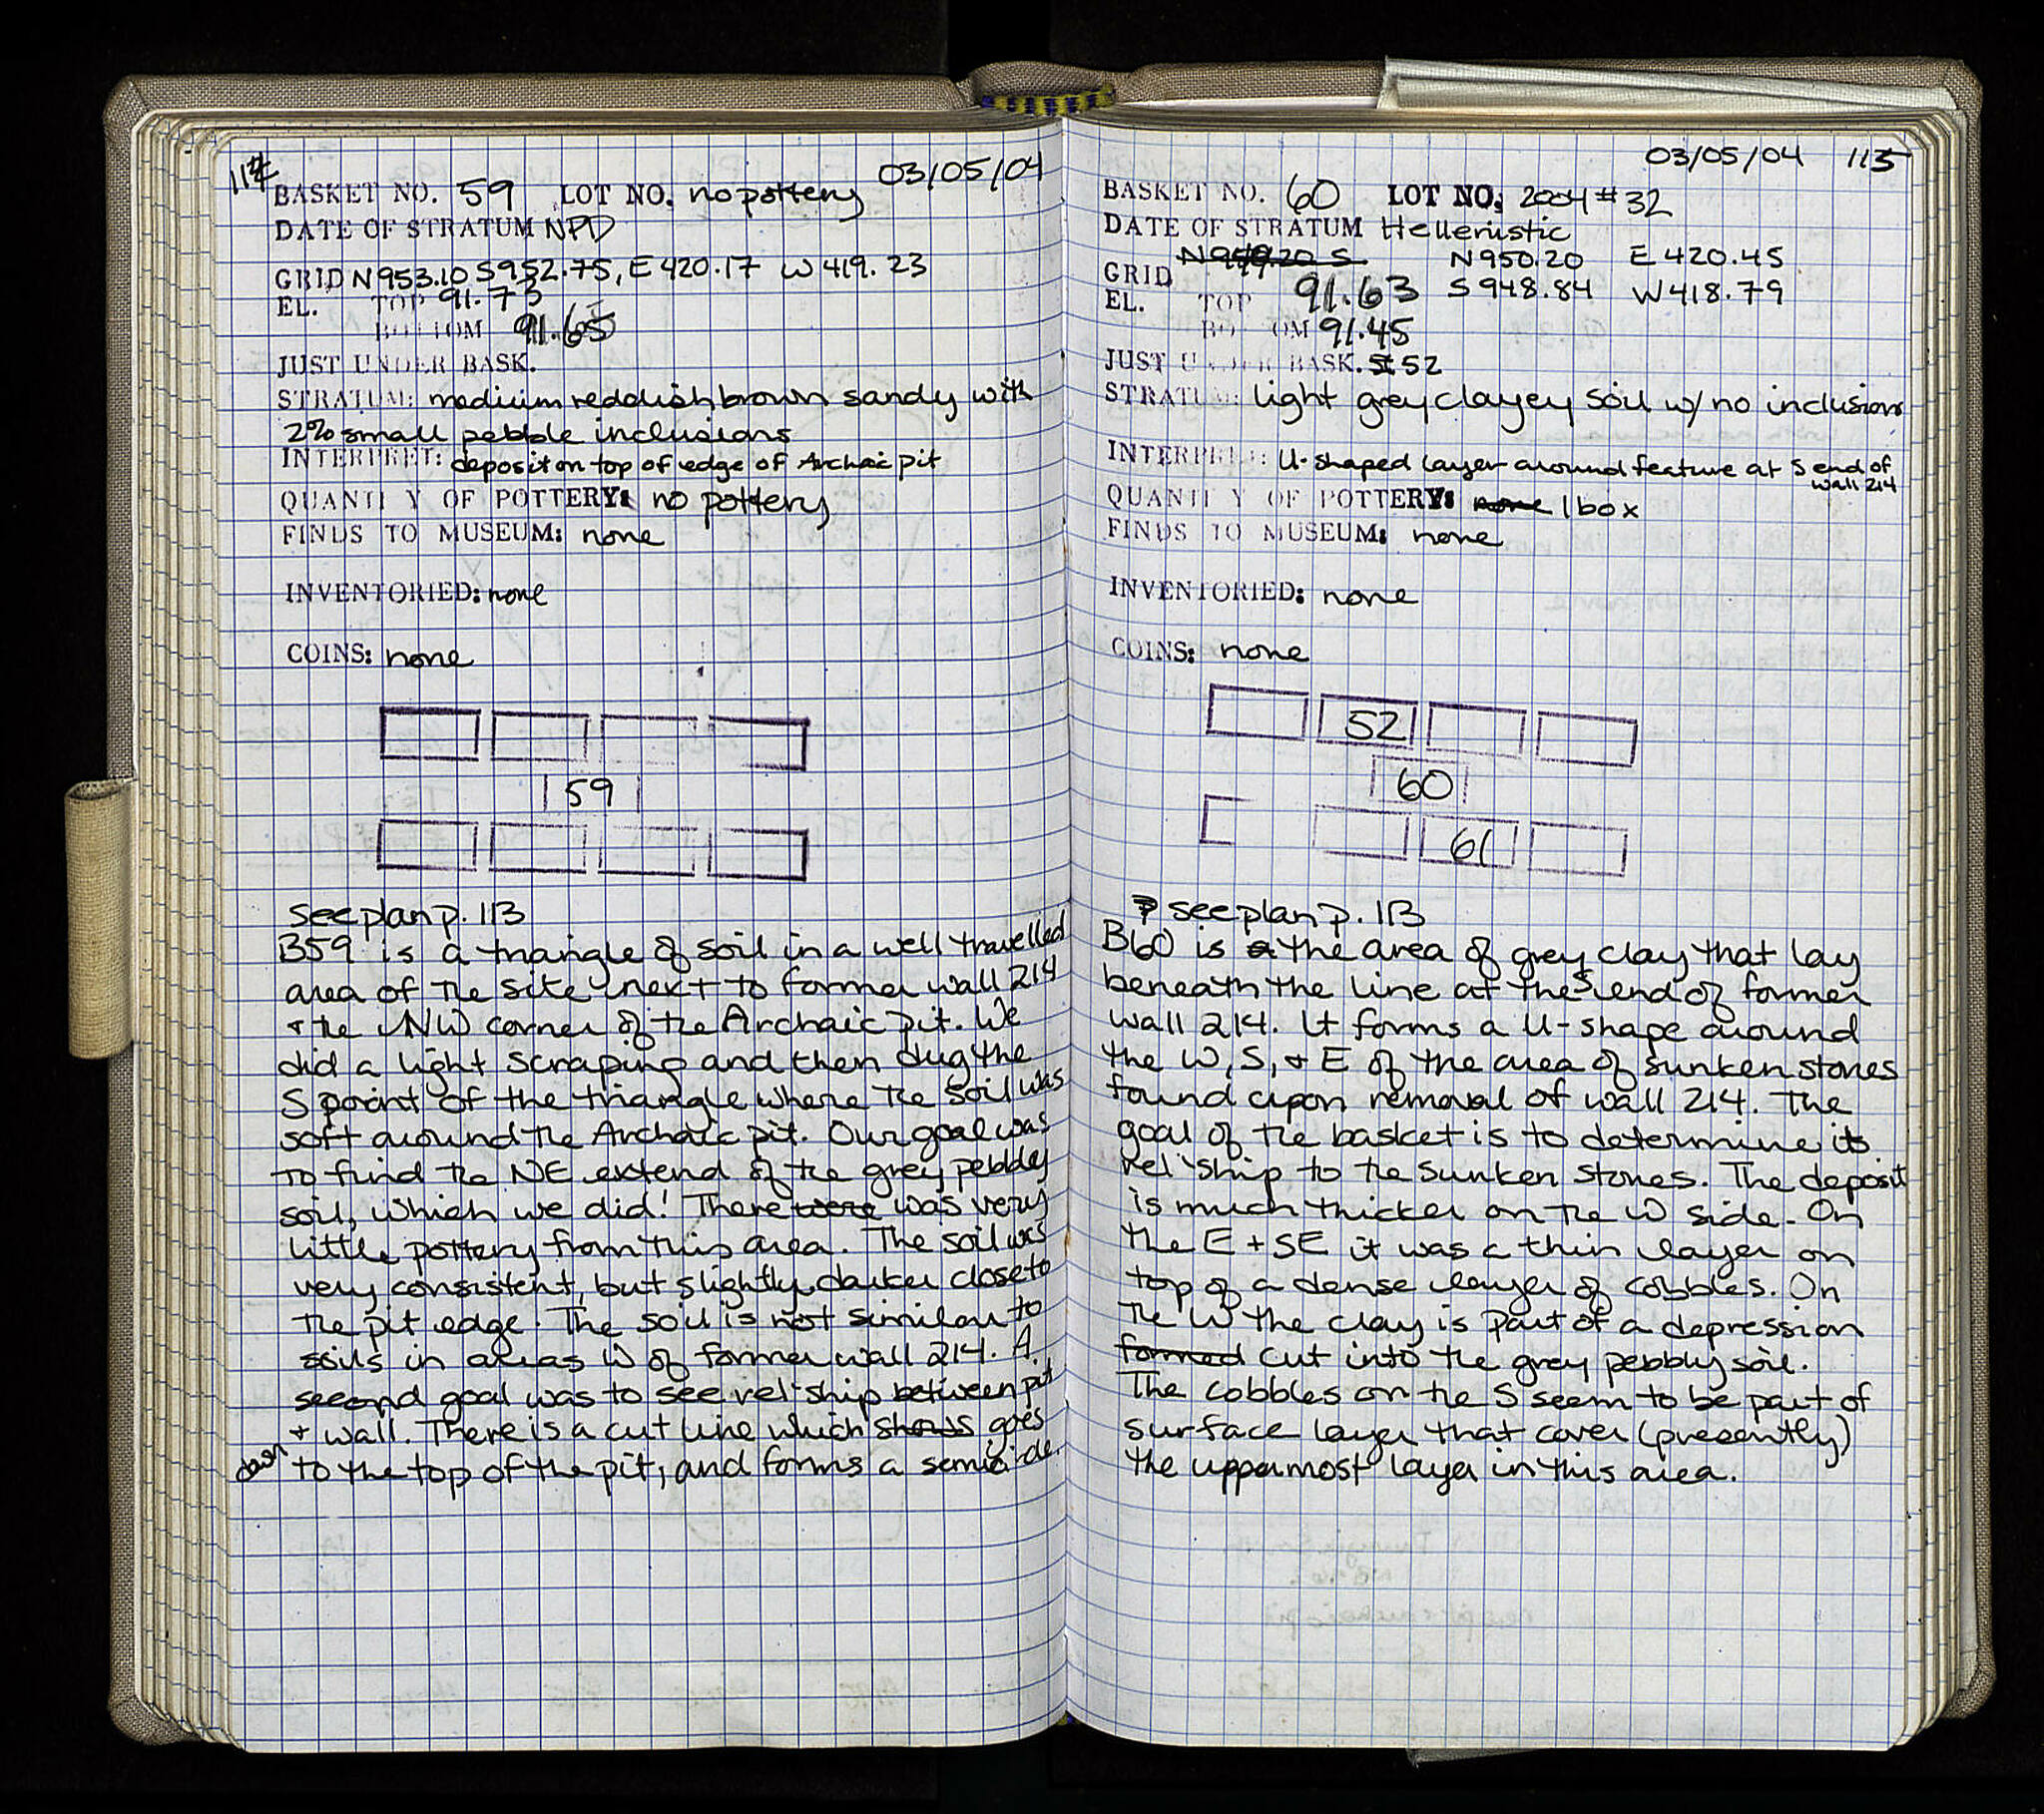 114
03/05/04
BASKET NO. 59 LOT NO. no pottery
DATE OF STRATUM NPD
GRID N953.10 S952.75, E420.17 W419.23
EL. TOP 91.73
BOTTOM 91.65
JUST UNDER BASK.
STRATUM: medium reddish brown sandy with
2% small pebble inclusions
INTERPRET: deposit on top of edge of Archaic pit
QUANTITY OF POTTERY: no pottery
FINDS TO MUSEUM: none
INVENTORIED: none
COINS: none
59
see plan p. 113
B59 is a triangle of soil in a well travelled
area of the site next to former wall 214
+ the NW corner of the Archaic pit. We
did a light scraping and then dug the
S point of the triangle where the soil was
soft around the Archaic pit. Our goal was
to find the NE extend of the grey pebbly
soil, which we did! There were was very
little pottery from this area. The soil was
very consistent, but slightly darker close to
the pit edge. The soil is not similar to
soils in areas W of former wall 214. A
second goal was to see rel'ship between pit
+ wall. There is a cut line which shows goes
down to the top of the pit, and forms a semicircle.
03/05/04 115
BASKET NO. 60 LOT NO: 2004 #32
DATE OF STRATUM Hellenistic
N949.20 S N950.20 E420.45
GRID S948.84 W418.79
EL. TOP 91.63
BOTTOM 91.45
JUST UNDER BASK. 52
STRATUM: light grey clayey soil w/ no inclusions
INTERPRET: U-shaped layer around feature at S end of
wall 214
QUANTITY OF POTTERY: none 1 box
FINDS TO MUSEUM: none
INVENTORIED: none
COINS: none
52
60
61
see plan p. 113
B60 is a the area of grey clay that lay
beneath the line at the S end of former
wall 214. It forms a U-shape around
the W, S, + E of the area of sunken stones
found upon removal of wall 214. The
goal of the basket is to determine its
rel'ship to the sunken stones. The deposit
is much thicker on the W side. On
the E + SE it was a thin layer on
top of a dense layer of cobbles. On
the W the clay is part of a depression
formed cut into the grey pebbly soil.
The cobbles on the S seem to be part of
surface layer that cover (presently)
the uppermost layer in this area.